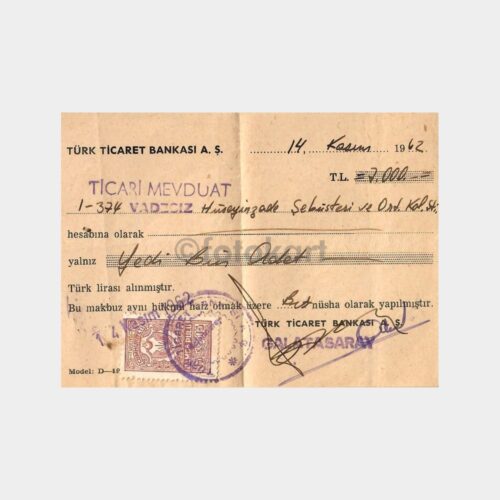 TÜRK TİCARET BANKASI A. Ş. 14, Kasım 1962
T.L. =7,000.=
TİCARİ MEVDUAT
1-374 VADESİZ Hüseyinzade Şebüsteri ve Ord. Kol. Şti.
hesabına olarak
yalnız Yedi Bin Adet
Türk lirası alınmıştır.
Bu makbuz aynı hükmü haiz olmak üzere Bir nüsha olarak yapılmıştır.
TÜRK TİCARET BANKASI A. Ş.
GALATASARAY
14 Kasım 1962
Model: D—19
© fotokart